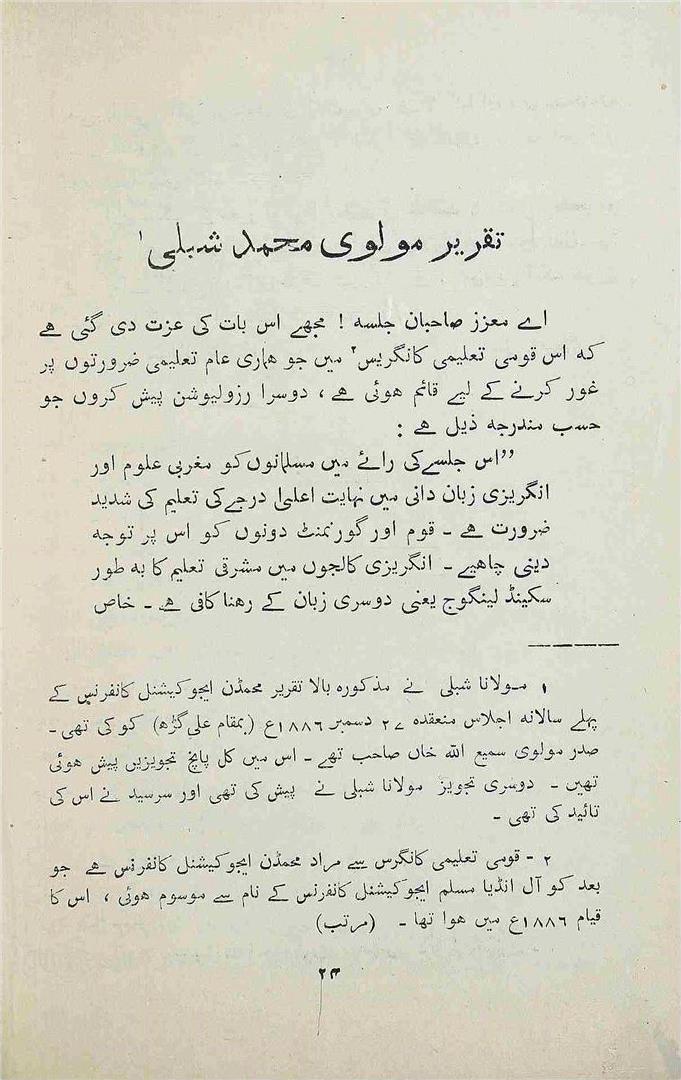 تقریر مولوی محمد شبلی ۱
اے معزز صاحبان جلسہ ! مجھے اس بات کی عزت دی گئی ہے
کہ اس قومی تعلیمی کانگریس۲ میں جو ہماری عام تعلیمی ضرورتوں پر
غور کرنے کے لیے قائم ہوئی ہے ، دوسرا رزولیوشن پیش کروں جو
حسب مندرجہ ذیل ہے :
”اس جلسے کی رائے میں مسلمانوں کو مغربی علوم اور
انگریزی زبان دانی میں نہایت اعلیٰ درجے کی تعلیم کی شدید
ضرورت ہے ۔ قوم اور گورنمنٹ دونوں کو اس پر توجہ
دینی چاہیے ۔ انگریزی کالجوں میں مشرقی تعلیم کا بہ طور
سکینڈ لینگوج یعنی دوسری زبان کے رہنا کافی ہے ۔ خاص
۱ مولانا شبلی نے مذکورہ بالا تقریر محمڈن ایجوکیشنل کانفرنس کے
پہلے سالانہ اجلاس منعقدہ ۲۷ دسمبر ۱۸۸۶ع (بمقام علی گڑھ) کو کی تھی ۔
صدر مولوی سمیع اللہ خاں صاحب تھے ۔ اس میں کل پانچ تجویزیں پیش ہوئی
تھیں ۔ دوسری تجویز مولانا شبلی نے پیش کی تھی اور سرسید نے اس کی
تائید کی تھی ۔
۲ ۔ قومی تعلیمی کانگرس سے مراد محمڈن ایجوکیشنل کانفرنس ہے جو
بعد کو آل انڈیا مسلم ایجوکیشنل کانفرنس کے نام سے موسوم ہوئی ، اس کا
قیام ۱۸۸۶ع میں ہوا تھا ۔ (مرتب)
۲۳